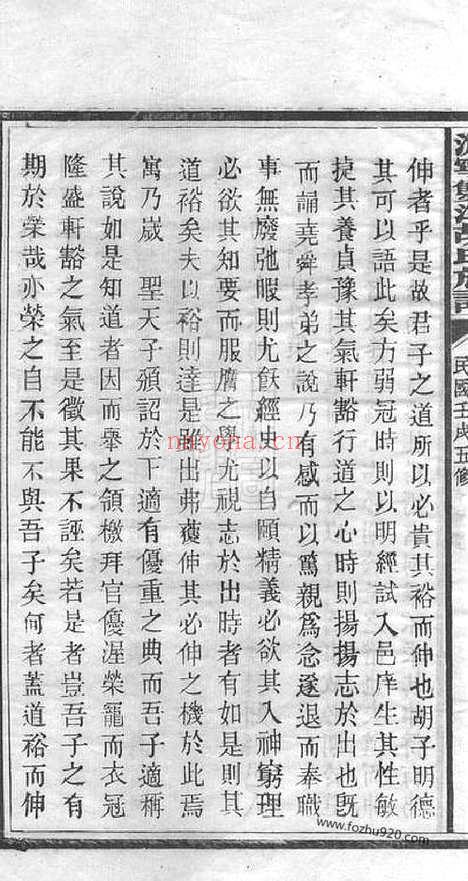 民國壬戌五修
伸者乎是故君子之道所以必貴其裕而伸也胡子明德
其可以語此矣方弱冠時則以明經試入邑庠生其性敏
捷其養貞豫其氣軒豁行道之心時則揚揚志於出也旣
而誦堯舜孝弟之說乃有感而以篤親爲念遂退而奉職
事無廢弛暇則尤飫經史以自頤精義必欲其入神窮理
必欲其知要而服膺之舉尤視志於出時者有如是則其
道裕矣夫以裕則達是雖出弗獲伸其必伸之機於此焉
寓乃嵗 聖天子頒詔於下適有優重之典而吾子適稱
其說如是知道者因而舉之領檄拜官優渥榮寵而衣冠
隆盛軒豁之氣至是徵其果不誣矣若是者豈吾子之有
期於榮哉亦榮之自不能不與吾子矣何者蓋道裕而伸
nayona.cn
www.fozhu920.com